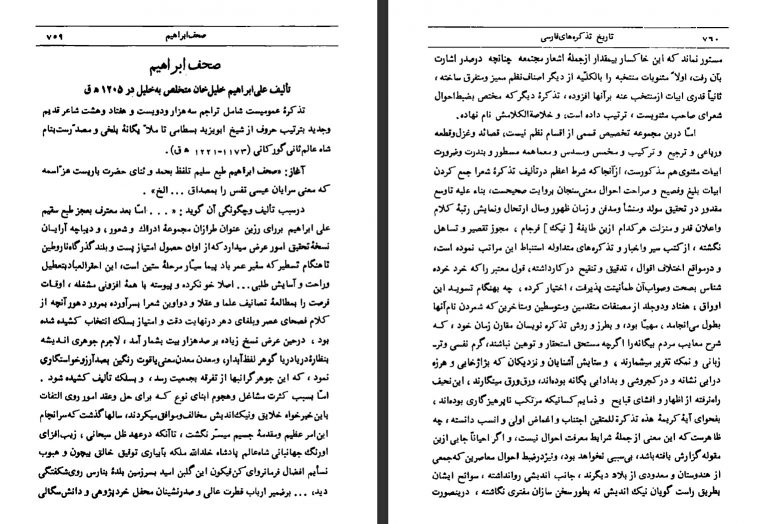 صحف ابراهیم ۷۵۹
صحف ابراهیم
تألیف علی ابراهیم خلیل خان متخلص به خلیل در ۱۲۰۵ ه ق
تذکرهٔ عمومیست شامل تراجم سه هزار ودویست و هفتاد وهشت شاعر قدیم
وجدید بترتیب حروف از شیخ ابویزید بسطامی تا ملا یگانهٔ بلخی و مصدّرست بنام
شاه عالم ثانی گورکانی (۱۱۷۳-۱۲۲۱ ه ق).
آغاز: «صحف ابراهیم طبع سلیم تلفظ بحمد و ثنای حضرت باریست عزّ اسمه
که معنی سرایان عیسی نفس را بمصداق ... الخ».
درسبب تألیف وچگونگی آن گوید: « ... امّا بعد معترف بعجز طبع سقیم
علی ابراهیم برروای رزین عنوان طرازان مجموعهٔ ادراك و شعور ، و دیباچه آرایان
نسخهٔ تحقیق امور عرض میدارد که از اوان حصول امتیاز پست و بلند گذرگاه ناروطین
تا هنگام تسطیر که سفیر عمر باد پیما سیّار مرحلهٔ ستین است، این احقر العباد بتعطیل
وراحت و آسایش طلبی... اصلا خو نکرده و پیوسته با همهٔ افزونی مشغله ، اوقات
فرصت را بمطالعهٔ تصانیف علما و عقلا و دواوین شعرا بسرآورده بمرور دهور آنچه از
کلام فصحای عصر وبلغای دهر درنهایت دقت و امتیاز بسلك انتخاب کشیده شده
بود ، درحین عرض نسخ زیاده بر صد هزار بیت بشمار آمد ، لاجرم جوهری اندیشه
بنظاره دریا دریا گوهر لفظ آبدار، و معدن معدن معنی یاقوت رنگین بصد آرزو خواستگاری
نمود ، که این جوهر گرانبها از تفرقه بجمعیت رسد ، و بسلك تألیف کشیده شود .
امّا بسبب کثرت مشاغل وهجوم ابنای نوع که برای حل وعقد امور روی التفات
باین خیرخواه خلایق ونیك اندیش مخالف وموافق میکردند، سالها گذشت که سرانجام
این امر عظیم ومقدمهٔ جسیم میسّر نگشت ، تا آنکه درعهد ظل سبحانی ، زیب افزای
اورنگ جهانبانی شاه عالم پادشاه خلدالله ملکه بآبیاری توفیق خالق بیچون و هبوب
نسایم افضال فرمانروای کن فیکون این گلبن امید بسرزمین بلدهٔ بنارس روی شکفتگی
دید، ... برضمیر ارباب فطرت عالی و صدرنشینان محفل خردپژوهی و دانش سگالی
۷۶۰ تاریخ تذکره های فارسی
مستور نماند که این خاکسار بیمقدار ازجملهٔ اشعار مجتمعه چنانچه درصدر اشارت
بآن رفت، اولاً مثنویات منتخبه را بالکلیّه از دیگر اصناف نظم ممیز ومتفرق ساخته ،
ثانیاً قدری ابیات ازمنتخب عنه برآنها افزوده ، تذکرهٔ دیگر که مختص بضبط احوال
شعرای صاحب مثنویست ، ترتیب داده است، و خلاصة الکلامش نام نهاده.
امّا درین مجموعه تخصیص قسمی از اقسام نظم نیست، قصائد وغزل وقطعه
ورباعی و ترجیع و ترکیب و مخمس ومسدس و معما همه مسطور و بندرت وضرورت
ابیات مثنوی هم مذکورست، ازآنجا که شرط اعظم درتألیف تذکرهٔ شعرا جمع کردن
ابیات بلیغ وفصیح و صراحت احوال معنی سنجان بروایت صحیحست، بناء علیه تاوسع
مقدور در تحقیق مولد ومنشأ ومدفن و زمان ظهور وسال ارتحال ونمایش رتبهٔ کلام
واعلان قدر و منزلت هر کدام ازین طایفهٔ [ نیك ] فرجام ، مجوز تقصیر و تساهل
نگشته ، از کتب سیر واخبار و تذکره های متداوله استنباط این مراتب نموده است،
و درمواقع اختلاف اقوال ، تدقیق و تنقیح در کار داشته، قول معتبر را که خرد خرده
شناس بصحت وصواب آن طمأنینت پذیرفت ، اختیار کرده ، چه بهنگام تسوید این
اوراق ، هفتاد ودوجلد از مصنفات متقدمین ومتوسطین ومتأخرین که شمردن نام آنها
بطول می انجامد ، مهیّا بود، و بطرز و روش تذکره نویسان مقارن زمان خود ، که
شرح معایب مردم بیگانه را اگرچه مستحق استحقار و توهین نباشند، گرم نفسی وتر-
زبانی و نمك تقریر میشمارند ، و ستایش آشنایان و نزدیکان که بژاژخایی و هرزه
درایی نشانه و در کجروشی و بدادایی یگانه بوده اند، ورق ورق مینگارند، این نحیف
راه نرفته از اظهار و افشای قبایح و ذمایم کسانیکه مرتکب ناپرهیزگاری بوده اند ،
بفحوای آیهٔ کریمهٔ هذه تذکرة للمتقین اجتناب و اغماض اولی و انسب دانسته ، چه
ظاهرست که این معنی ازجملهٔ شرایط معرفت احوال نیست، و اگر احیاناً جایی ازین
مقوله گزارش یافته باشد، بی سببی نخواهد بود، ونیز درضبط احوال معاصرین که جمعی
از هندوستان و معدودی از بلاد دیگرند ، جانب اندیشی روا نداشته ، سوانح ایشان
بطریق راست گویان نیك اندیش نه بطور سخن سازان مفتری نگاشته ، درینصورت